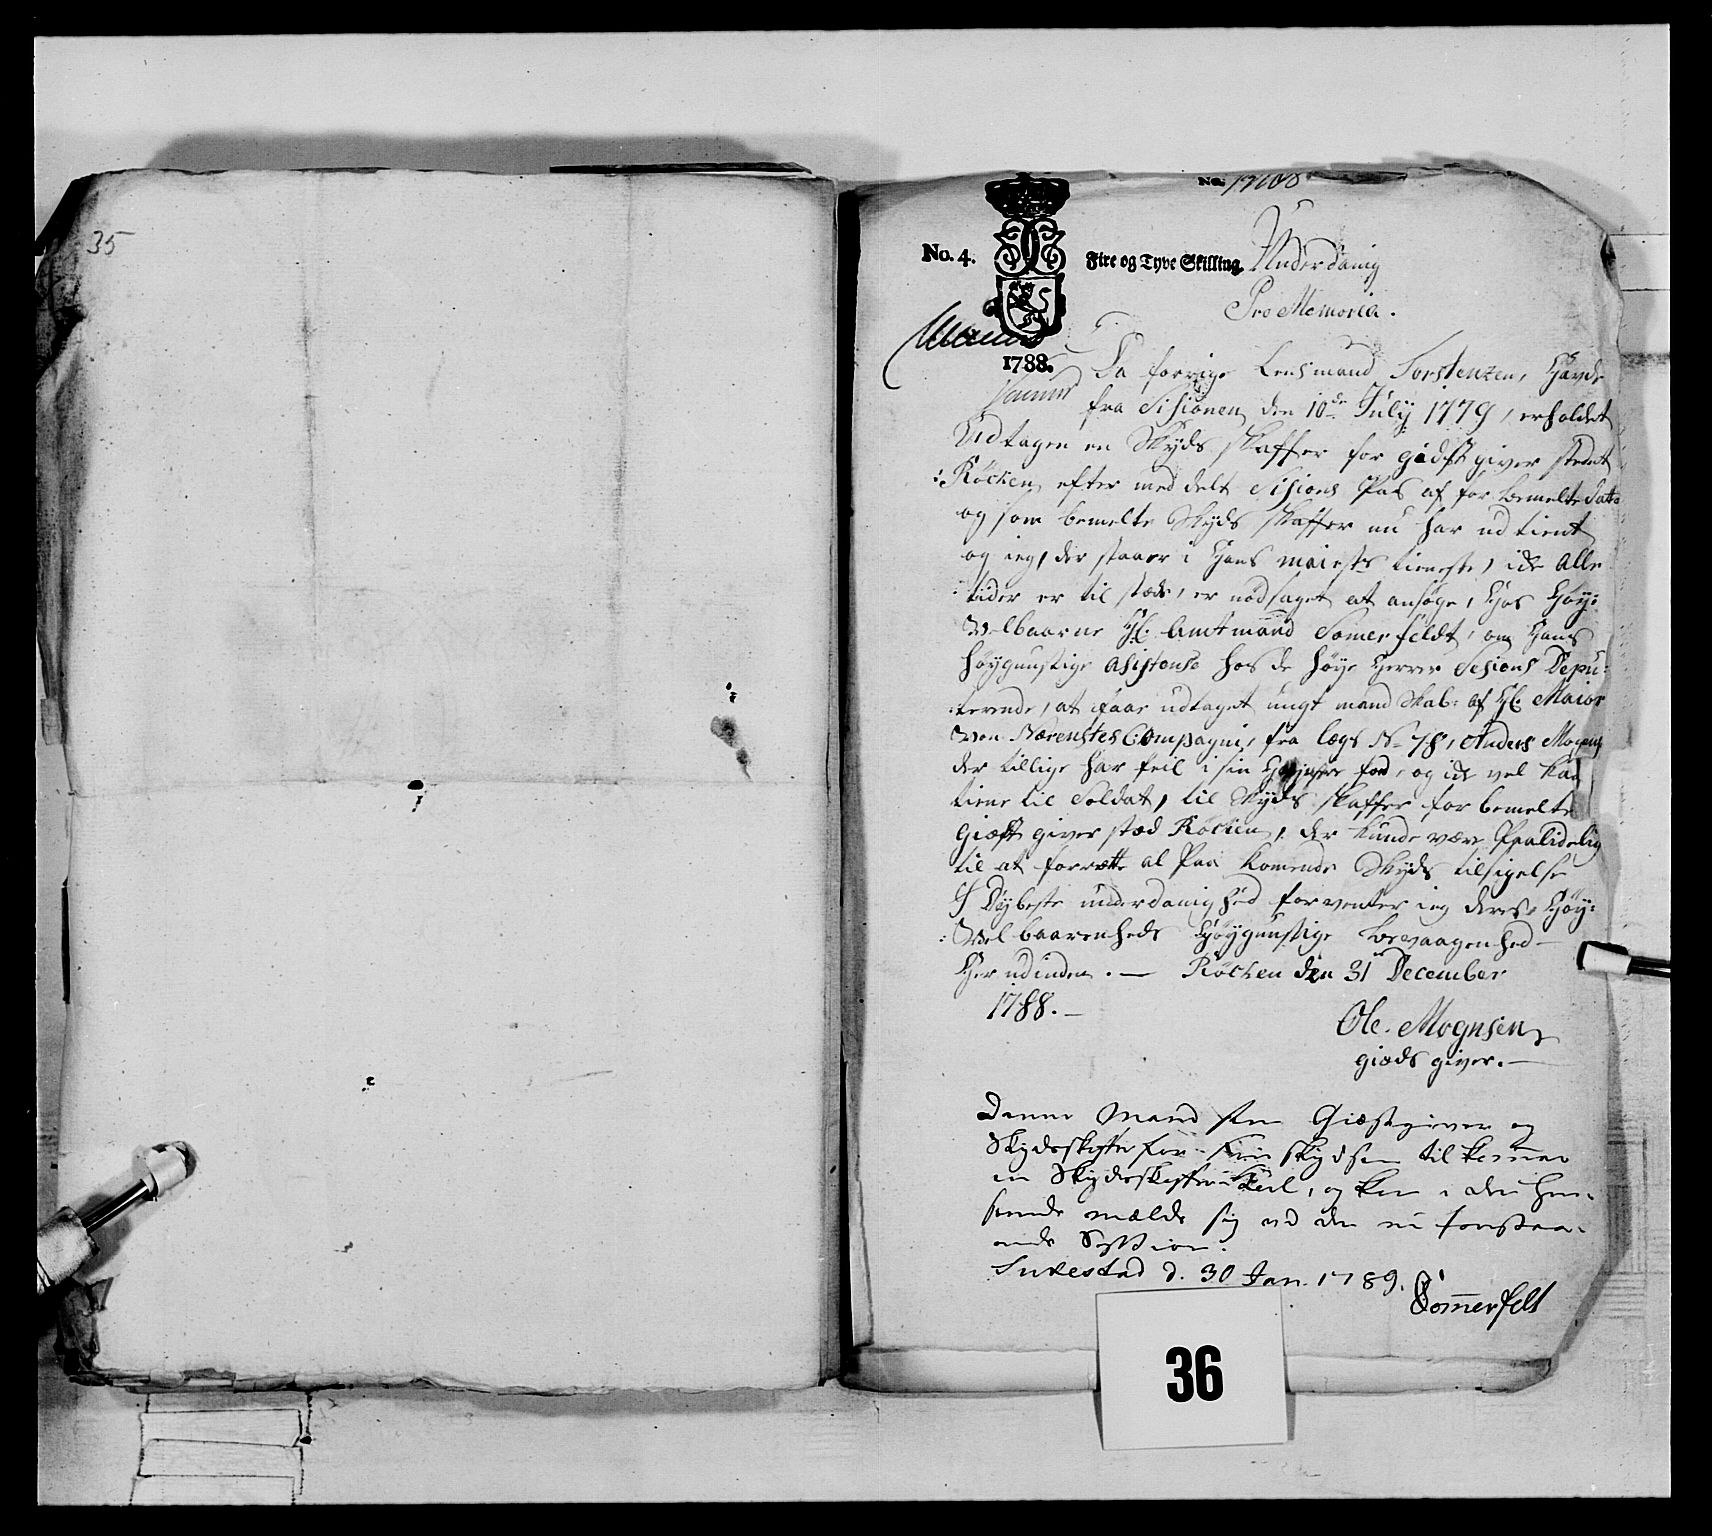 35
No. 17100
No. 4. Fire og Tyve Skilling.
Underdanig
Pro Memoria.
1788.
Da forrige Lensmand Torstensen, Havde
fra Sisionen den 10de July 1779, erholdet
Udtagen en Skyds skaffer for gidstgiver stedet
Röcken efter med delt Sisions Pas af for bemelte dato
og som bemelte Skyds skaffer nu har ud tient
og ieg, der staaer i Hans maiests tieneste, ide Alle
tider er til stæde, er nødsaget at ansøge, Hos Høy:
Welbaarne Hl: Amtmand Somerfeldt, om Hans
höygunstige asistense hos de høye Herrer Sesions Depu:
:terende, at faae udtaget ungt mand skab: af Hl: Maior
Von Nærenstes Compagni, fra lægs No 78, Anders Mogens
der tillige har feil i sin Høyre fod, og ide vel kan
tiene til Soldat, til Skyds skaffer for bemelte
Giæst giver stæd Röcken, der kunde være Paalidelig
til at forrætte al Paa komende Skyds tilsigelse
I Dybeste underdanighed forventer ieg deres Høy:
:Wel baarenheds Høygunstige bevaagenhed -
Her udinden. - Röcken den 31 December
1788. -
Ole. Mognsen
giæds giver. -
Denne Mand som Giæstgiver og
Skydsskafter for skydsen tilkommer
en Skydsskafter Karl, og kan i den hen-
seende mælde sig ved den nu forestaa-
ende Session.
Tukestad d. 30 Jan. 1789.
Sommerfelt
36